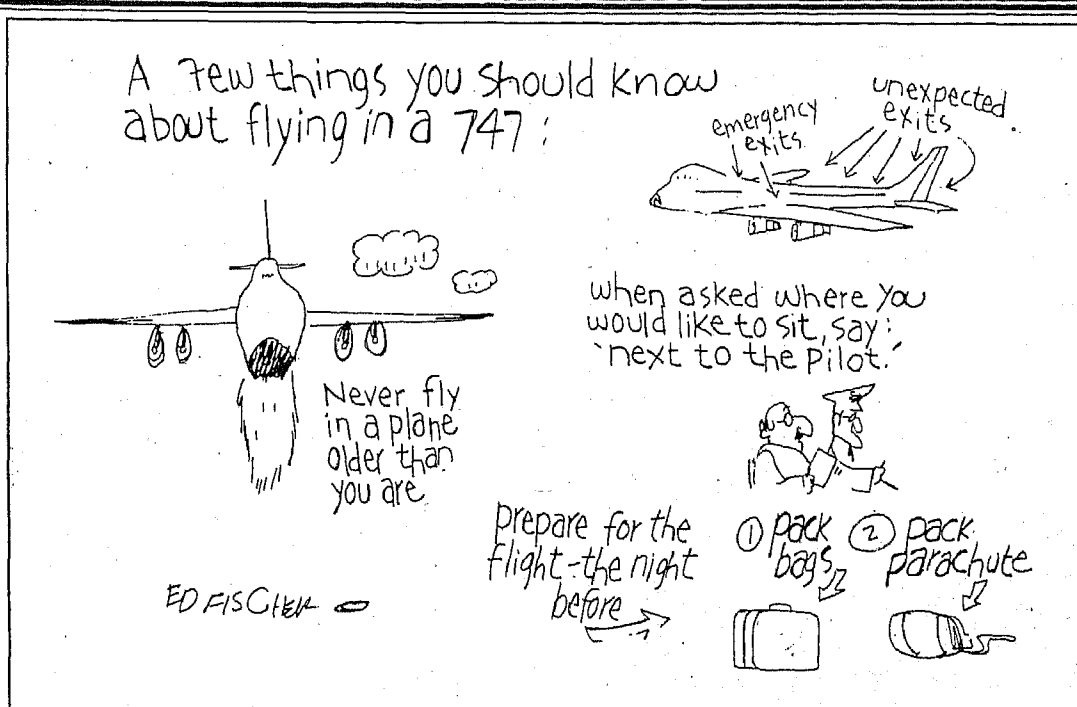 A few things you should know
about flying in a 747 :
emergency
exits
unexpected
exits
Never fly
in a plane
older than
you are
when asked where you
would like to sit, say:
'next to the Pilot.'
prepare for the
flight - the night
before
① pack
bags
② pack
parachute
ED FISCHER